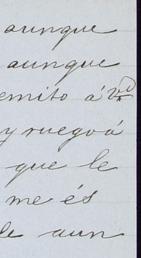 aunque
aunque
emito á Vd
y ruego á
que le
me és
le aun